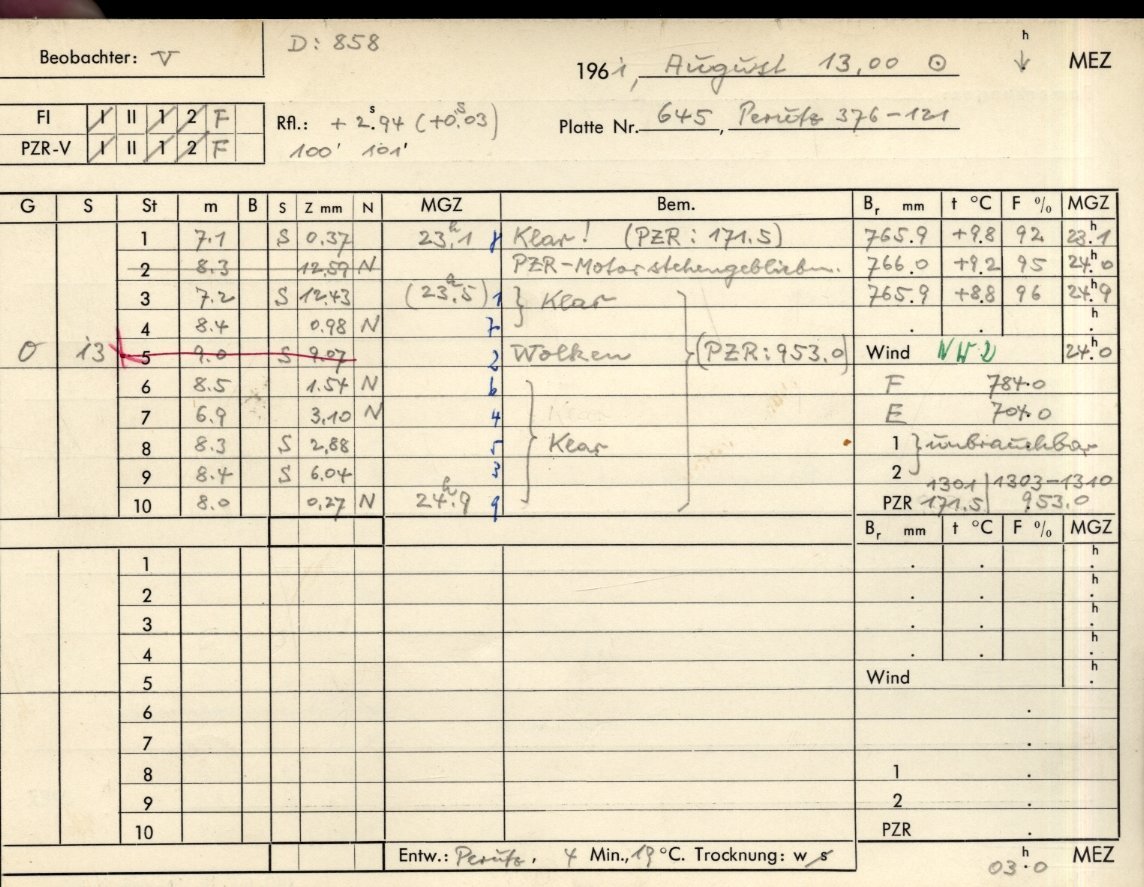 D: 858
Beobachter: V
1961, August 13,00 ⊙ h ↓ MEZ
FI I II 1 2 F
PZR-V I II 1 2 F
Rfl.: + 2.ˢ94 (+0.ˢ03)
100' 101'
Platte Nr. 645, Perutz 376-121
G S St m B S Z mm N MGZ Bem. Bᵣ mm t °C F % MGZ
1 7.1 S 0.37 23.ʰ1 8 Klar! (PZR: 171.5) 765.9 +9.8 92 23.ʰ1
2 8.3 12,59 N PZR-Motor stehengeblieben. 766.0 +9.2 95 24.ʰ0
3 7.2 S 12.43 (23.ʰ5) 1 Klar 765.9 +8.8 96 24.ʰ9
4 8.4 0.98 N 7 . . h .
0 13 5 9.0 S 9.07 2 Wolken (PZR: 953.0) Wind NW 2 24.ʰ0
6 8.5 1.54 N 6 F 784.0
7 6.9 3,10 N 4 E 704.0
8 8.3 S 2,88 5 Klar 1 unbrauchbar
9 8.4 S 6.04 3 2 1301 1303-1310
10 8.0 0.27 N 24.ʰ9 9 PZR 171.5 953.0
Bᵣ mm t °C F % MGZ
1 . . h .
2 . . h .
3 . . h .
4 . . h .
5 Wind h .
6 .
7 .
8 1 .
9 2 .
10 PZR .
Entw.: Perutz, 4 Min., 19 °C. Trocknung: w s
03.ʰ0 MEZ